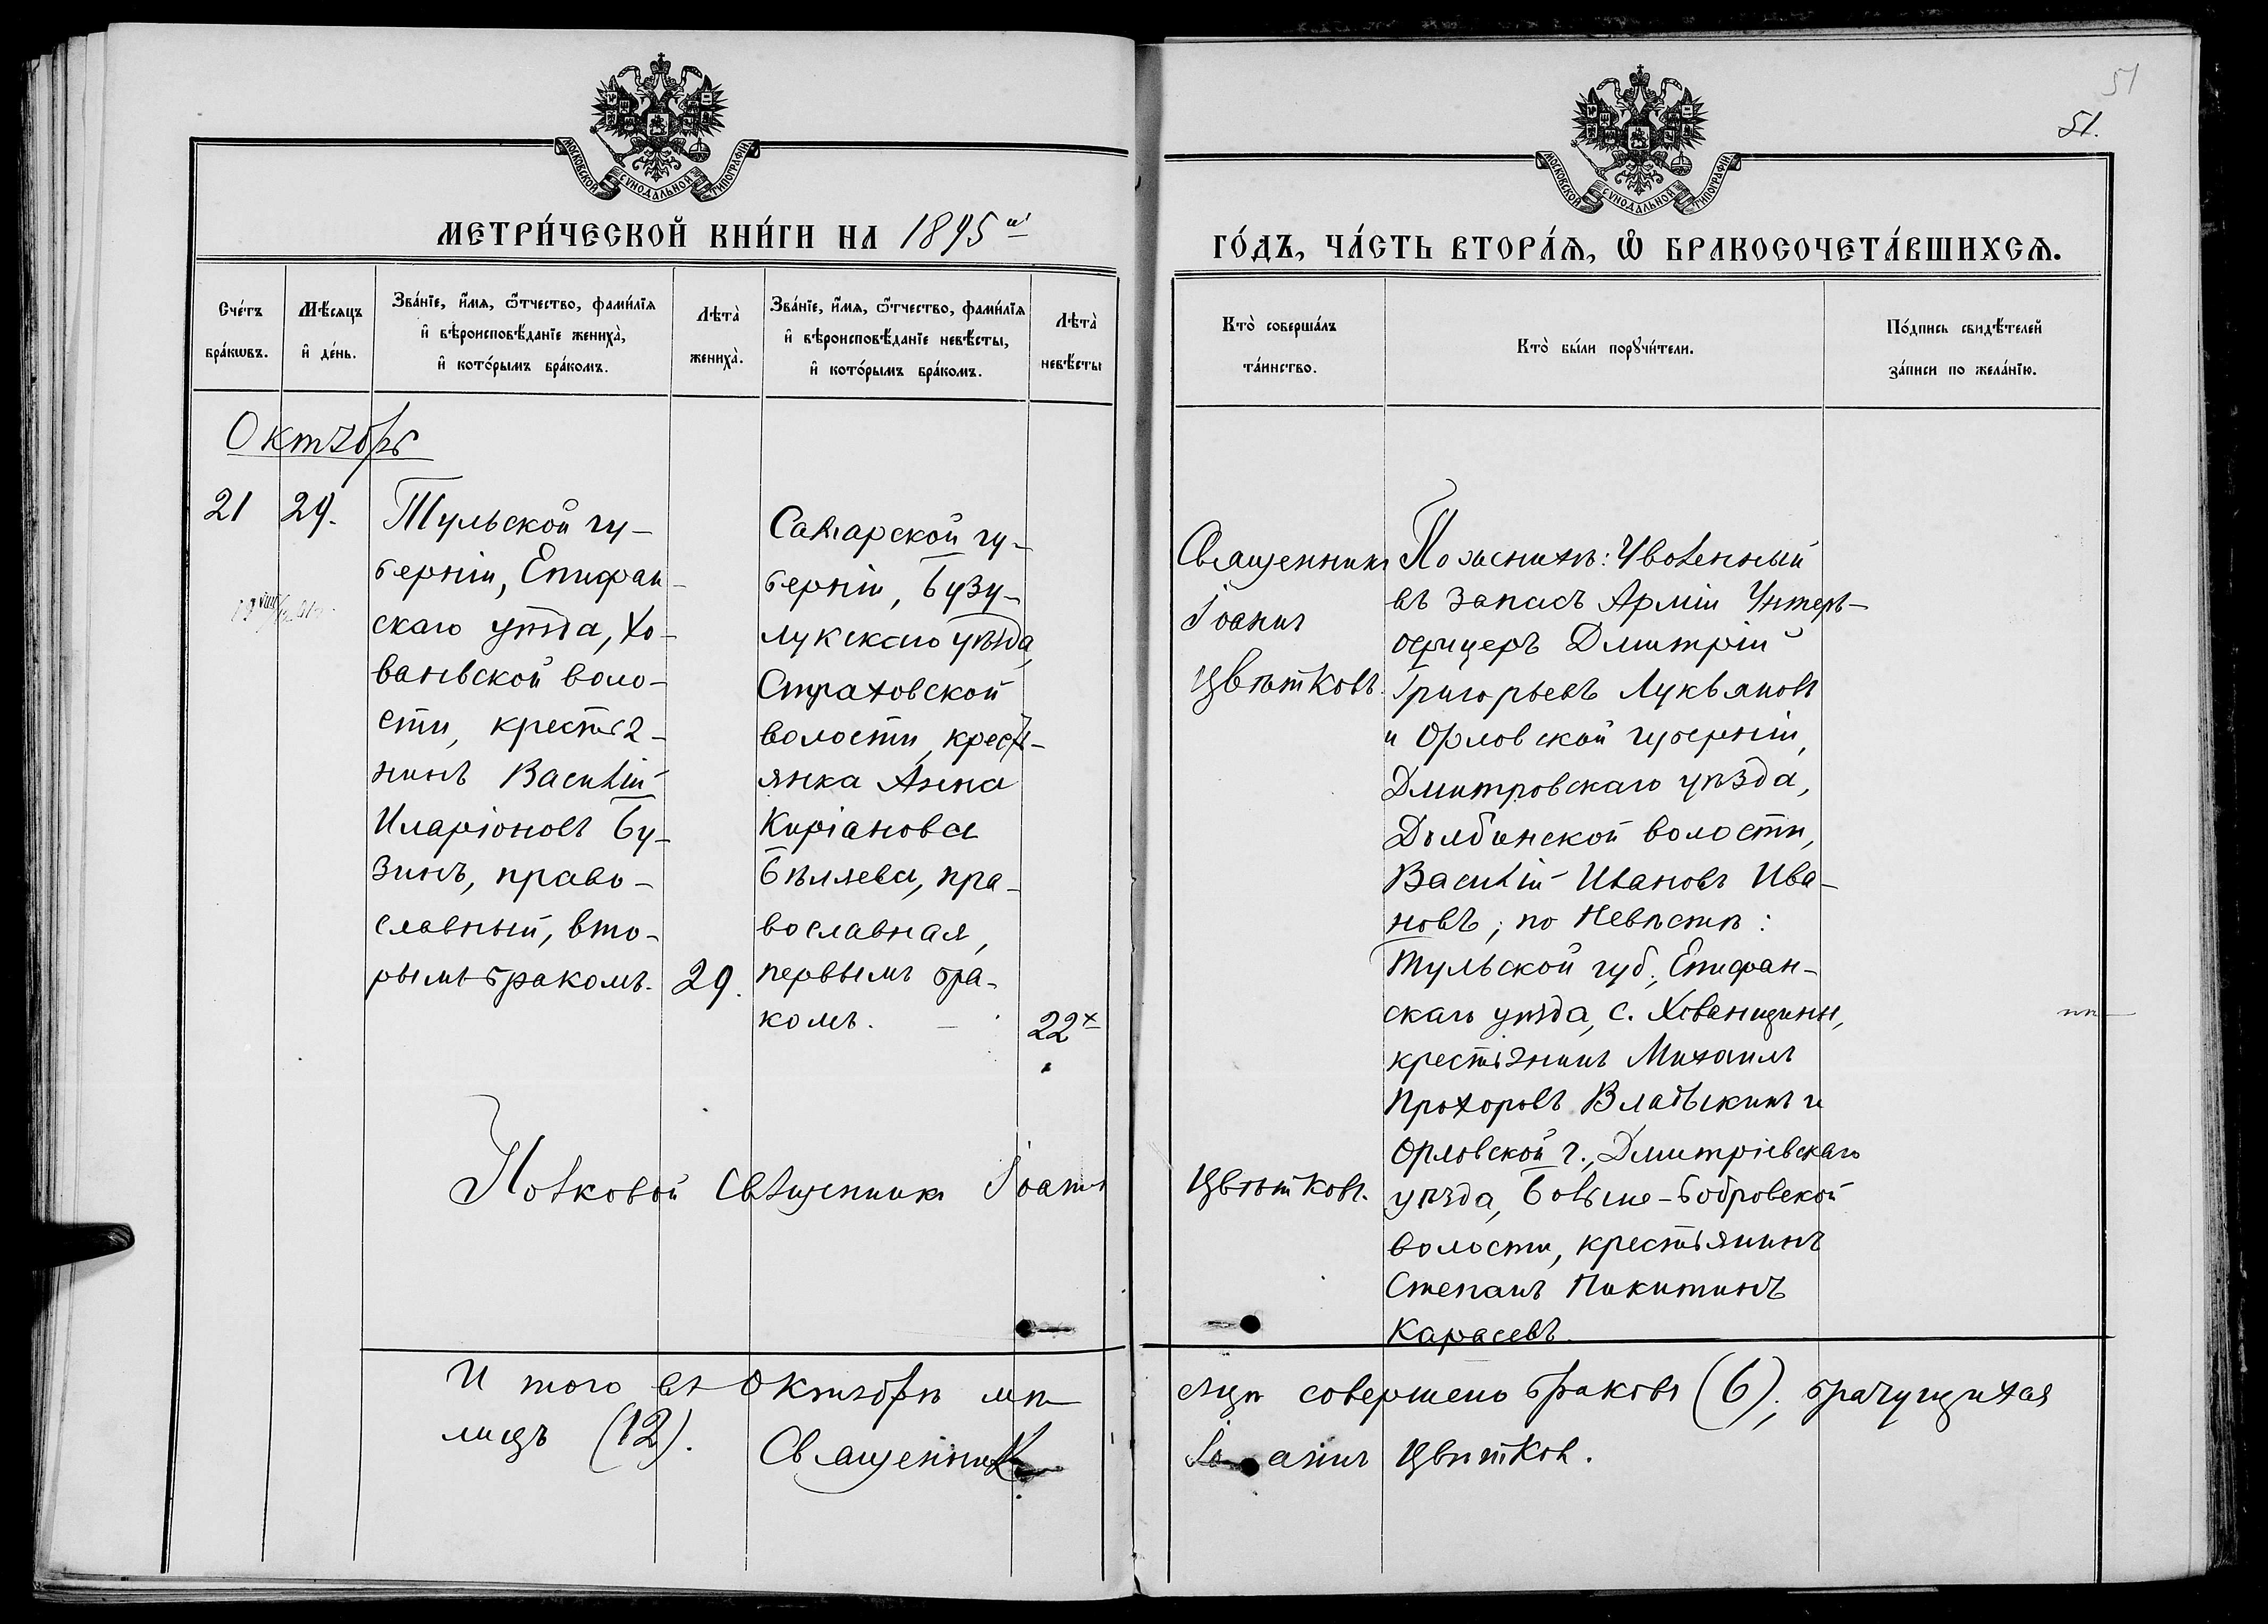 51
51.
МОСКОВСКОЙ СУНОДАЛЬНОЙ ТИПОГРАФІИ
МОСКОВСКОЙ СУНОДАЛЬНОЙ ТИПОГРАФІИ
МЕТРИ́ЧЕСКОЙ КНИ́ГИ НА 1895й
ГО́ДЪ, ЧА́СТЬ ВТОРА́Ѧ, Ѽ БРАКОСОЧЕТА́ВШИХСѦ.
Сче́тъ
бра́кѡвъ.
Мѣ́сѧцъ
и҆ де́нь.
Зва́нїе, и҆́мѧ, ѻ҆́тчество, фами́лїѧ
и҆ вѣроисповѣ́данїе жениха̀,
и҆ кото́рымъ бра́комъ.
Лѣта̀
жениха̀.
Зва́нїе, и҆́мѧ, ѻ҆́тчество, фами́лїѧ
и҆ вѣроисповѣ́данїе невѣ́сты,
и҆ кото́рымъ бра́комъ.
Лѣта̀
невѣ́сты
Кто̀ соверша́лъ
та́инство.
Кто̀ бы́ли порꙋчи́тели.
По́дпись свидѣ́телей
за́писи по жела́нїю.
Октябрь
21
29.
Тульской гу-
берніи, Епифан-
скаго уѣзда, Хо-
ваневской воло-
сти, крестья-
нинъ Василій
Иларіоновъ Бу-
зинъ, право-
славный, вто-
рымъ бракомъ.
29.
Самарской гу-
берніи, Бузу-
лукскаго уѣзда,
Страховской
волости, кресть-
янка Анна
Киріанова
Бѣляева, пра-
вославная,
первымъ бра-
комъ.
22
Священникъ
Іоаннъ
Цвѣтковъ.
По женихѣ: Уволенный
въ запасъ Арміи Унтеръ-
офицеръ Дмитрій
Григорьевъ Лукьяновъ
и Орловской губерніи,
Дмитровскаго уѣзда,
Долбинской волости,
Василій Ивановъ Ива-
новъ; по Невѣстѣ:
Тульской губ., Епифан-
скаго уѣзда, с. Хованщины,
крестьянинъ Михаилъ
Прохоровъ Владыкинъ и
Орловской г., Дмитріевскаго
уѣзда, Больше-Бобровской
волости, крестьянинъ
Степанъ Никитинъ
Карасевъ.
Полковой Священникъ Іоаннъ Цвѣтковъ.
Итого въ Октябрѣ мѣсяцѣ совершено браковъ (6); брачущихся
лицъ (12). Священникъ Іоаннъ Цвѣтков.